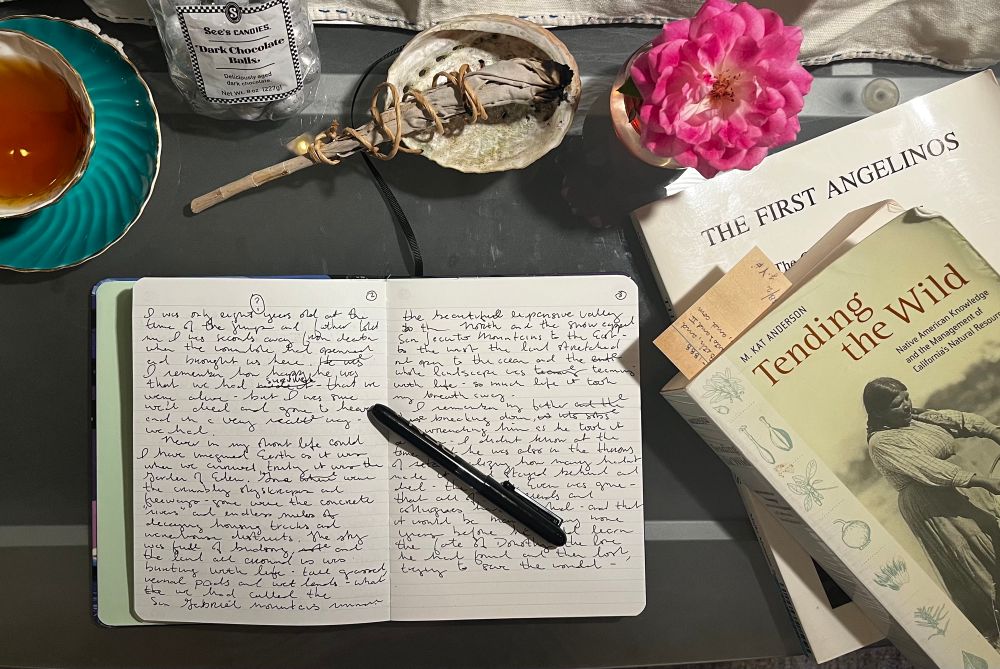 SEE'S CANDIES®
Dark Chocolate
Balls
Deliciously aged
dark chocolate.
Net Wt. 8 oz (227g)
THE FIRST ANGELINOS
The
M. KAT ANDERSON
Tending
the Wild
Native American Knowledge
and the Management of
California's Natural Resour
?
2
I was only eight years old at the
time of the jump and father told
me I was seconds away from death
when the wormhole had opened
and brought us here. He was
I remember how happy he was
that we had survived - that we
were alive - but I was sure
we'd died and gone to heaven
and in a very real way -
we had.
Never in my short life could
I have imagined Earth as it was
when we arrived. Truly it was the
Garden of Eden. Gone were
the crumbly skyscrapers and
freeways - gone were the concrete
rivers and endless miles of
decaying housing tracts and
warehouse districts. The sky
was full of birdsong and
the land all around us was
bursting with life - tall grasses
vernal pools and wet lands - what
we had called the
San Gabriel mountains
3
the beautiful expansive valley
to the North and the snow capped
San Jacinto Mountains to the East
to the west the land stretched
out open to the ocean and the
whole landscape was teeming
with life - so much life it took
my breath away.
I remember my father
breaking down
wracking him as he took it
I didn't know at the
time he was also in the throes
of
stayed behind and
Even was gone -
that all of friends and
collegues - and that
it would be many more
years before learn
the fate of the love
he had found and then lost,
trying to save the world -